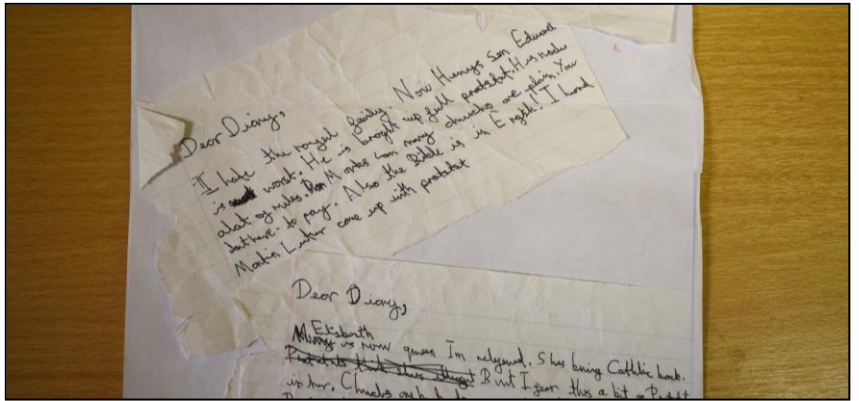 Dear Diary,
I hate the royal family. Now Henrys son Edward
is worst. He is broght up full protetat. His made
alot of rules. Monks can marry chuchs are plain. You
dont have to pay. Also the bible is in English! I heard
Martin Luther come up with protetat
Dear Diary,
Elisberth
Mary is now queen Im relyved. Shes bring Cathlic back.
But I fear this a bit
in her. Chuchs